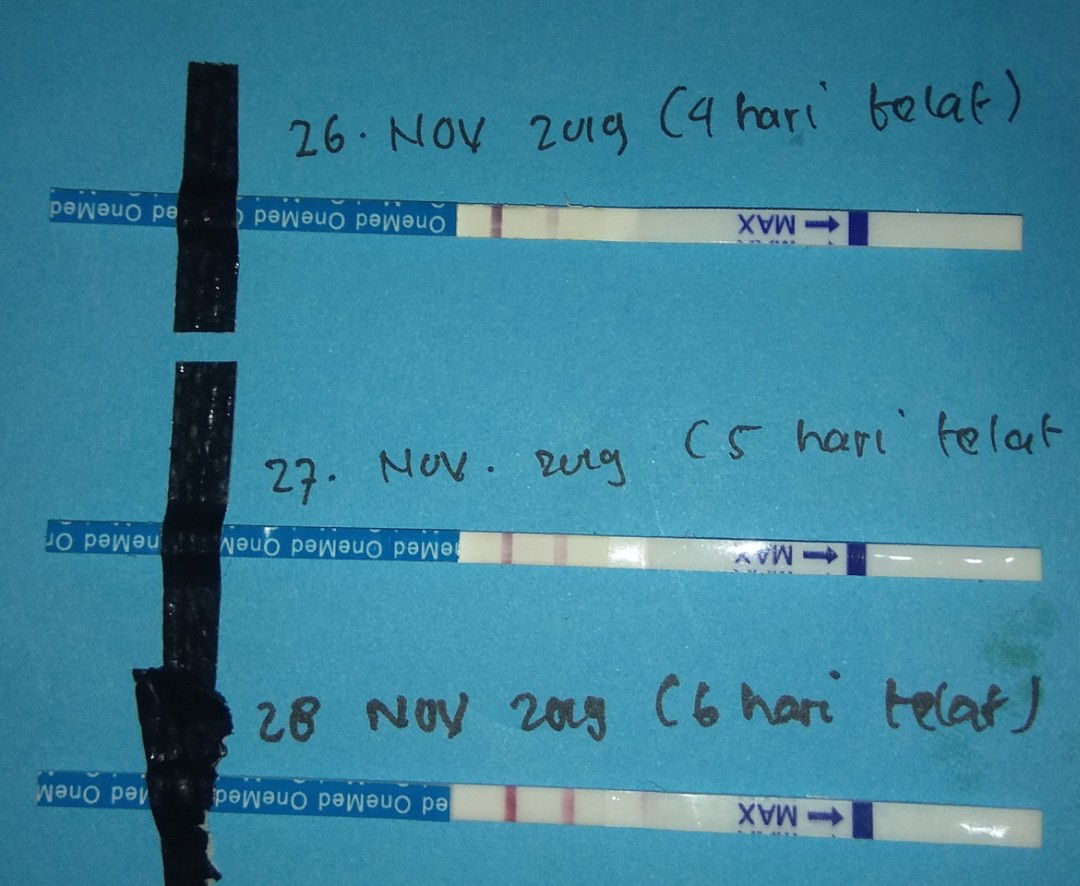 26. NOV 2019 (4 hari telat)
OneMed OneMed OneMed OneMed
MAX
27. NOV. 2019 (5 hari telat
OneMed OneMed OneMed
MAX
28 NOV 2019 (6 hari telat)
OneMed OneMed OneMed
MAX